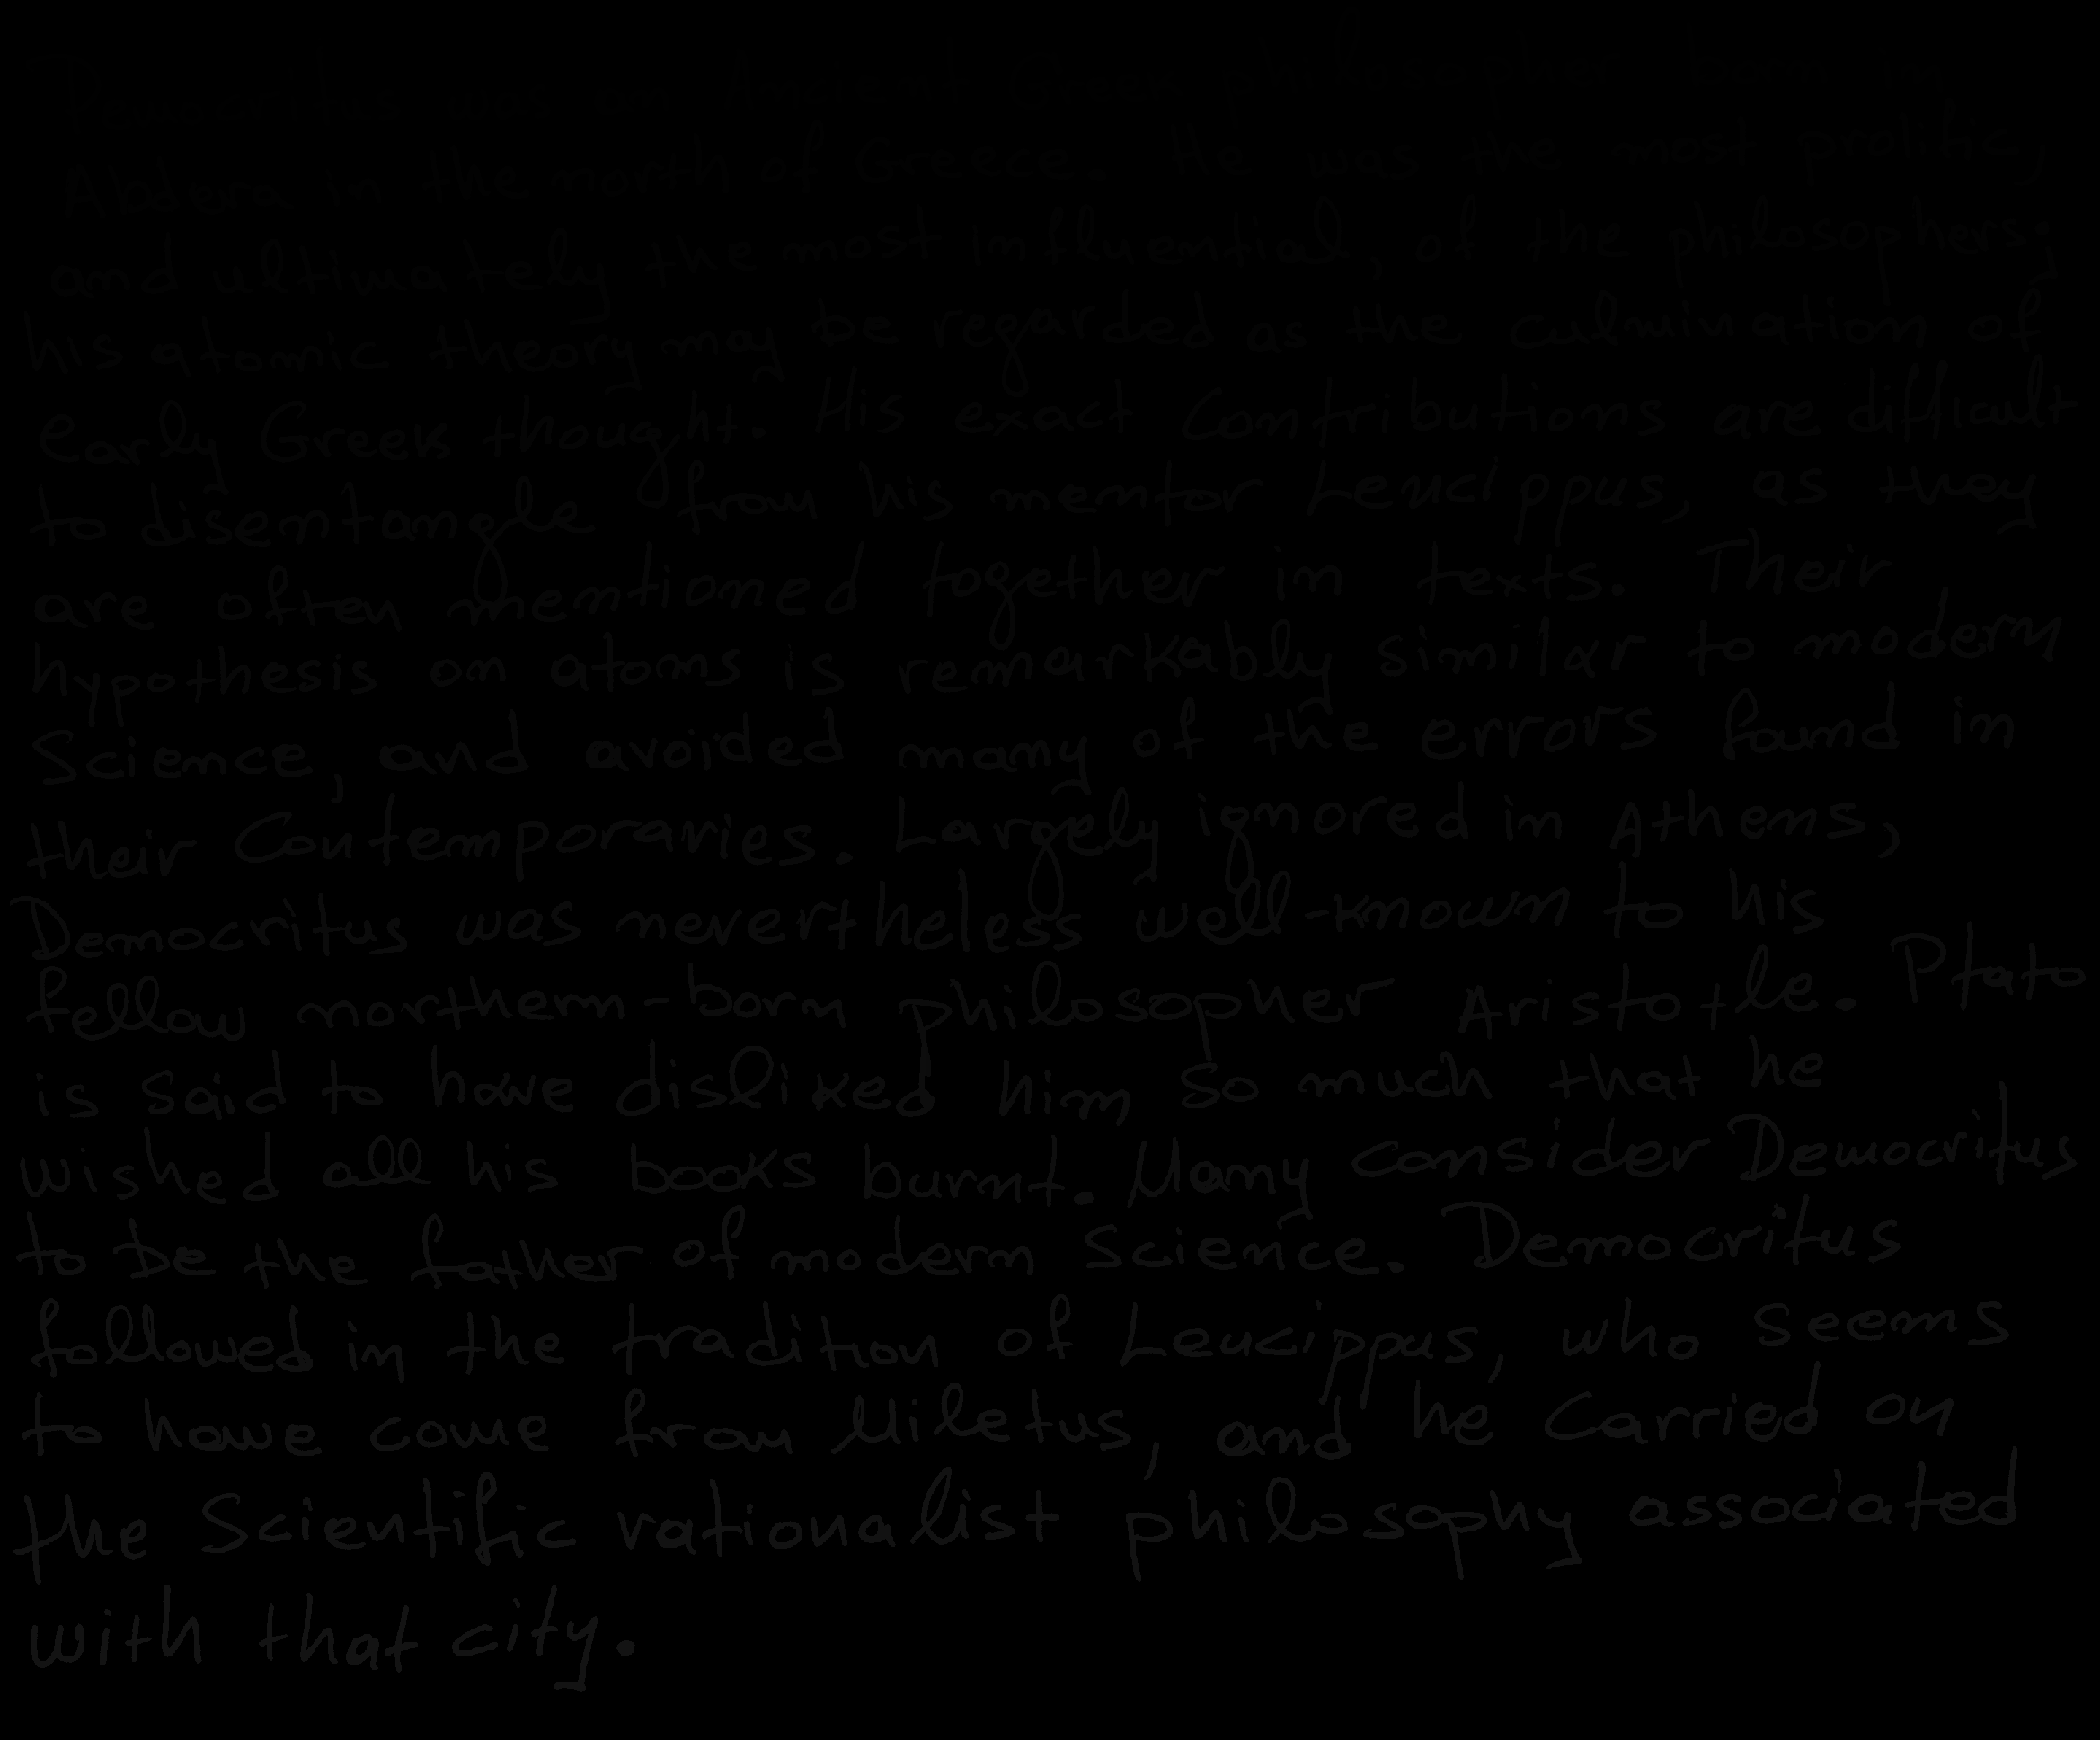 Democritus was an Ancient Greek philosopher born in
Abdera in the north of Greece. He was the most prolific,
and ultimately the most influential, of the philosophers;
his atomic theory may be regarded as the culmination of
early Greek thought. His exact contributions are difficult
to disentangle from his mentor Leucippus, as they
are often mentioned together in texts. Their
hypothesis on atoms is remarkably similar to modern
Science, and avoided many of the errors found in
their Contemporaries. Largely ignored in Athens,
Democritus was nevertheless well-known to his
fellow northern-born philosopher Aristotle. Plato
is said to have disliked him so much that he
wished all his books burnt. Many consider Democritus
to be the father of modern Science. Democritus
followed in the tradition of Leucippus, who seems
to have come from Miletus, and he carried on
the Scientific rationalist philosophy associated
with that city.